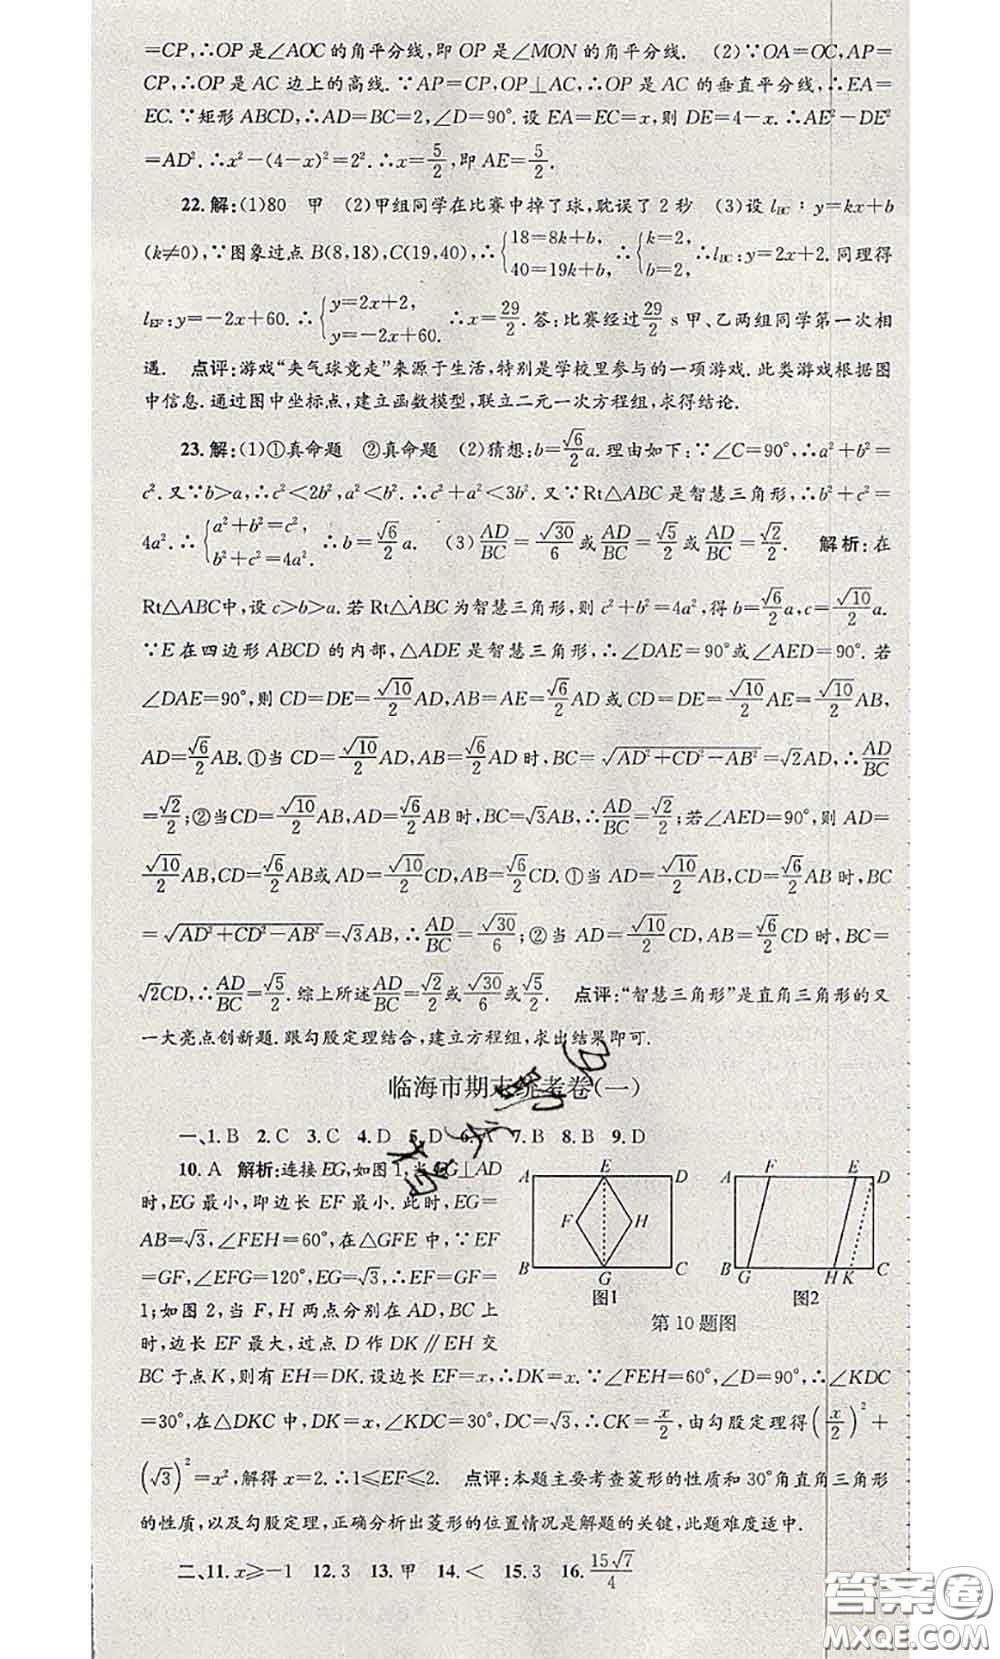 =CP,∴OP 是∠AOC 的角平分线,即 OP 是∠MON 的角平分线. (2)∵OA=OC,AP=
CP,∴OP 是 AC 边上的高线.∵AP=CP,OP⊥AC,∴OP 是 AC 的垂直平分线,∴EA=
EC.∵矩形 ABCD,∴AD=BC=2,∠D=90°.设 EA=EC=x,则 DE=4-x.∴AE²-DE²
=AD².∴x²-(4-x)²=2².∴x=5/2,即 AE=5/2.
22.解:(1)80 甲 (2)甲组同学在比赛中掉了球,耽误了 2 秒 (3)设 l_BC:y=kx+b
(k≠0),∵图象过点 B(8,18),C(19,40),∴{18=8k+b, 40=19k+b, ∴{k=2, b=2. ∴l_BC:y=2x+2.同理得
l_EF:y=-2x+60.∴{y=2x+2, y=-2x+60. ∴x=29/2.答:比赛经过29/2 s 甲、乙两组同学第一次相
遇. 点评:游戏“夹气球竞走”来源于生活,特别是学校里参与的一项游戏.此类游戏根据图
中信息.通过图中坐标点,建立函数模型,联立二元一次方程组,求得结论.
23.解:(1)①真命题 ②真命题 (2)猜想:b=√6/2 a.理由如下:∵∠C=90°,∴a²+b²=
c².又∵b>a,∴c²<2b²,a²<b².∴c²+a²<3b².又∵Rt△ABC 是智慧三角形,∴b²+c²=
4a².∴{a²+b²=c², b²+c²=4a². ∴b=√6/2 a. (3)AD/BC=√30/6或AD/BC=√5/2或AD/BC=√2/2. 解析:在
Rt△ABC中,设 c>b>a.若 Rt△ABC 为智慧三角形,则 c²+b²=4a²,得 b=√6/2 a,c=√10/2 a.
∵E 在四边形 ABCD 的内部,△ADE 是智慧三角形,∴∠DAE=90°或∠AED=90°.若
∠DAE=90°,则 CD=DE=√10/2 AD,AB=AE=√6/2 AD 或 CD=DE=√10/2 AE=√10/2 AB,
AD=√6/2 AB.①当 CD=√10/2 AD,AB=√6/2 AD 时,BC=√(AD²+CD²-AB²)=√2AD,∴AD/BC
=√2/2;②当CD=√10/2 AB,AD=√6/2 AB 时,BC=√3AB,∴AD/BC=√2/2;若∠AED=90°,则 AD=
√10/2 AB,CD=√6/2 AB或 AD=√10/2 CD,AB=√6/2 CD.①当 AD=√10/2 AB,CD=√6/2 AB 时,BC
=√(AD²+CD²-AB²)=√3AB,∴AD/BC=√30/6;②当 AD=√10/2 CD,AB=√6/2 CD 时,BC=
√2CD,∴AD/BC=√5/2.综上所述AD/BC=√2/2或√30/6或√5/2. 点评:“智慧三角形”是直角三角形的又
一大亮点创新题.跟勾股定理结合,建立方程组,求出结果即可.
临海市期末统考卷(一)
一、1.B 2.C 3.C 4.D 5.D 6.A 7.B 8.B 9.D
10.A 解析:连接EG,如图 1,当 EG⊥AD
时,EG 最小,即边长 EF 最小.此时,EG=
AB=√3,∠FEH=60°,在△GFE 中,∵EF
=GF,∠EFG=120°,EG=√3,∴EF=GF=
1;如图 2,当 F,H 两点分别在 AD,BC 上
时,边长 EF 最大,过点 D 作 DK∥EH 交
A E D
F H
B G C
图1
A F E D
B G H K C
图2
第 10 题图
BC 于点 K,则有 EH=DK.设边长 EF=x,∴DK=x.∵∠FEH=60°,∠D=90°,∴∠KDC
=30°,在△DKC 中,DK=x,∠KDC=30°,DC=√3,∴CK=x/2,由勾股定理得(x/2)²+
(√3)²=x²,解得 x=2.∴1≤EF≤2. 点评:本题主要考查菱形的性质和30°角直角三角形
的性质,以及勾股定理,正确分析出菱形的位置情况是解题的关键,此题难度适中.
二、11.x≥-1 12.3 13.甲 14.< 15.3 16.15√7/4
答案卷
MXQE.COM